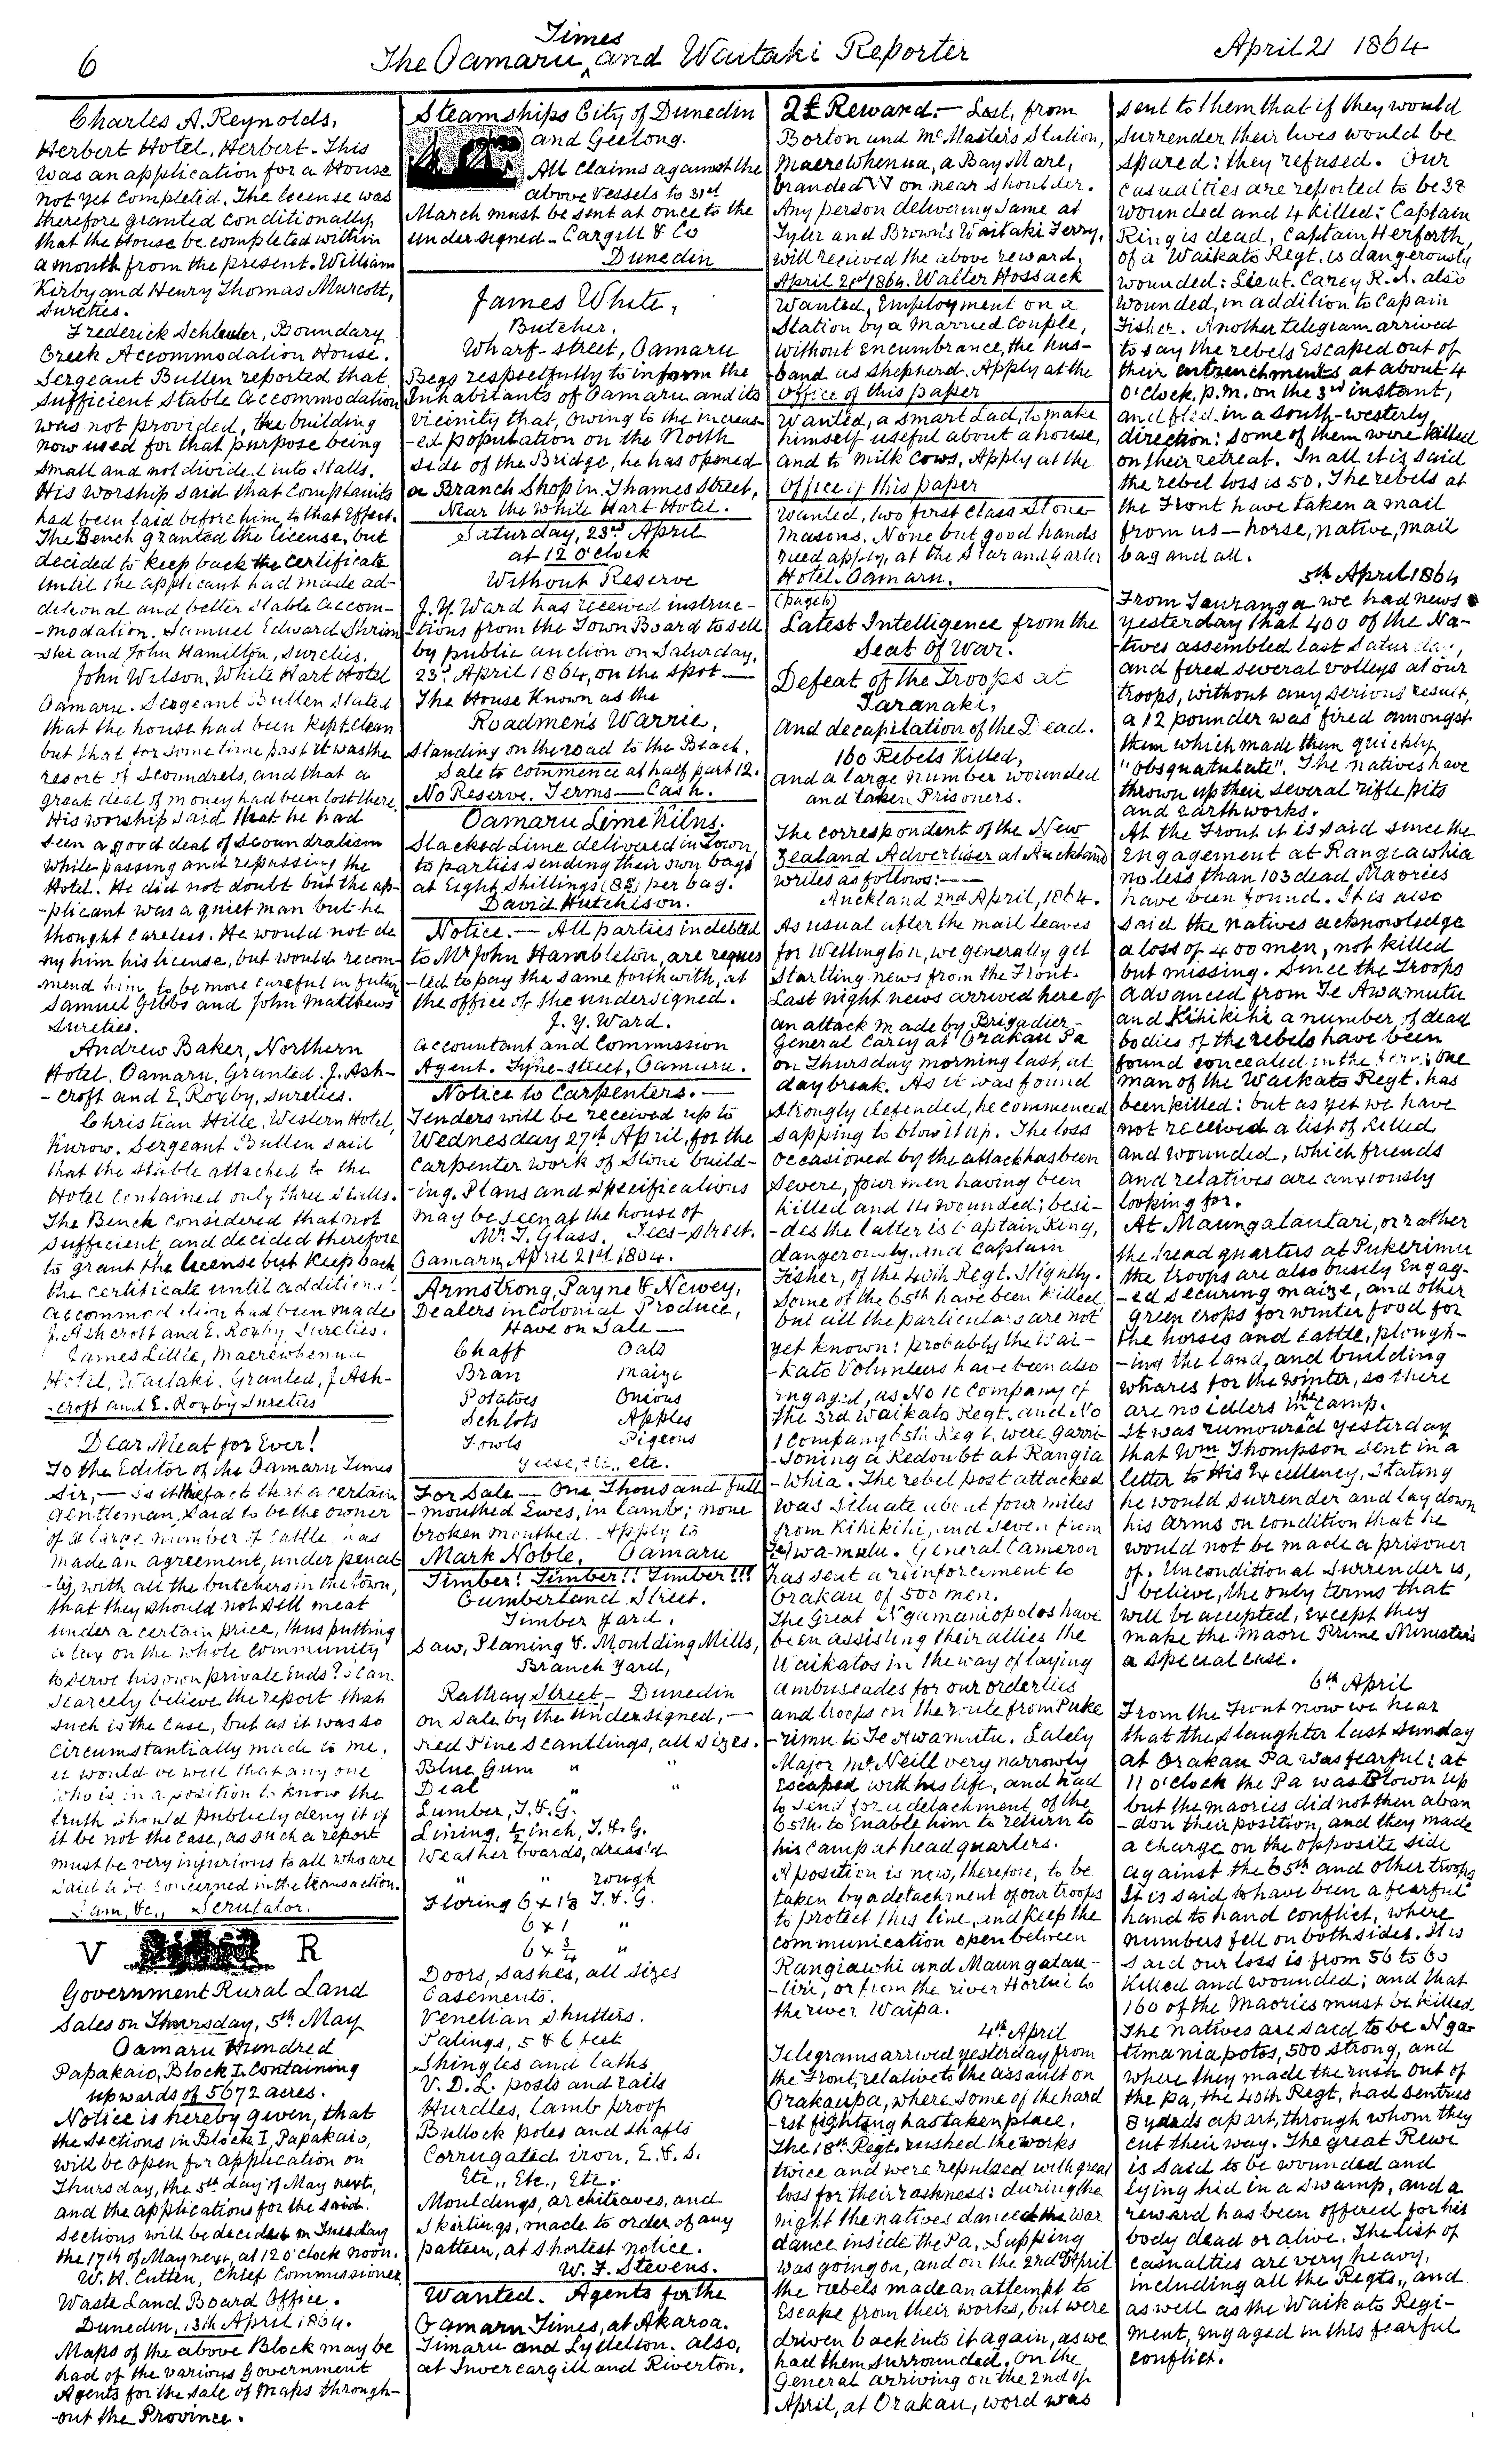 6
The Oamaru Times and Waitaki Reporter
April 21 1864
Charles A. Reynolds,
Herbert Hotel, Herbert. This
was an application for a House
not yet completed. The license was
therefore granted conditionally,
that the House be completed within
a month from the present. William
Kirby and Henry Thomas Murcott,
Sureties.
Frederick Schluter, Boundary
Creek Accommodation House.
Sergeant Bullen reported that
Sufficient Stable Accommodation
was not provided, the building
now used for that purpose being
small and not divided into Stalls.
His Worship said that Complaints
had been laid before him to that Effect.
The Bench granted the license, but
decided to keep back the certificate
until the applicant had made ad-
ditional and better stable accom-
-modation. Samuel Edward Shrim
-ski and John Hamilton, Sureties.
John Wilson, White Hart Hotel
Oamaru. Sergeant Bullen Stated
that the house had been kept clean
but that for some time past it was the
resort of Scoundrels, and that a
great deal of money had been lost there.
His worship said that he had
seen a good deal of Scoundralism
while passing and repassing the
Hotel. He did not doubt but the ap-
-plicant was a quiet man but he
thought careless. He would not de
ny him his license, but would recom-
mend him to be more careful in future
Samuel Gibbs and John Matthews
Sureties.
Andrew Baker, Northern
Hotel. Oamaru, Granted. J. Ash-
-croft and E. Roxby, Sureties.
Christian Hille, Western Hotel,
Kurow. Sergeant Bullen said
that the stable attached to the
Hotel contained only three Stalls.
The Bench considered that not
sufficient, and decided therefore
to grant the license but keep back
the certificate until additional
accommodation had been made
J. Ashcroft and E. Roxby, Sureties.
James Lillie, Maerewhenua
Hotel, Waitaki. Granted, J Ash-
-croft and E. Roxby Sureties
Dear Meat for Ever!
To the Editor of the Oamaru Times
Sir, — is it the fact that a certain
Gentleman, said to be the owner
of a large number of Cattle has
made an agreement, under penal
-ty, with all the butchers in the town,
that they should not sell meat
under a certain price, thus putting
a tax on the whole community
to serve his own private Ends? I can
scarcely believe the report that
such is the case, but as it was so
circumstantially made to me,
it would be well that any one
who is in a position to know the
truth should publicly deny it if
it be not the case, as such a report
must be very injurious to all who are
said to be concerned in the transaction.
I am, &c., Scrutator.
V R
Government Rural Land
Sales on Thursday, 5th May
Oamaru Hundred
Papakaio, Block I. Containing
upwards of 5672 acres.
Notice is hereby given, that
the Sections in Block I, Papakaio,
will be open for application on
Thursday, the 5th day of May next,
and the applications for the said
Sections will be decided on Tuesday
the 17th of May next, at 12 o'clock noon.
W. H. Cutten, Chief Commissioner
Waste Land Board Office.
Dunedin, 13th April 1864.
Maps of the above Block may be
had of the various Government
Agents for the sale of Maps through-
-out the Province.
Steamships City of Dunedin
and Geelong.
All Claims against the
above Vessels to 31st
March must be sent at once to the
undersigned - Cargill & Co
Dunedin
James White,
Butcher.
Wharf-street, Oamaru
Begs respectfully to inform the
Inhabitants of Oamaru and its
vicinity that, owing to the increas-
-ed population on the North
side of the Bridge, he has opened
a Branch Shop in Thames Street,
Near the White Hart Hotel.
Saturday, 23rd April
at 12 o'clock
Without Reserve
J. Y. Ward has received instruc-
-tions from the Town Board to sell
by public auction on Saturday,
23rd April 1864, on the spot —
The House Known as the
Roadmen's Warrie,
Standing on the road to the Beach.
Sale to commence at half part 12.
No Reserve. Terms — Cash.
Oamaru Lime Kilns.
Slacked Lime delivered in Town,
to parties sending their own bags
at Eight Shillings (8s) per bag.
David Hutchison.
Notice. — All parties indebted
to Mr John Hambleton, are reques
-ted to pay the same forthwith, at
the office of the undersigned.
J. Y. Ward.
accountant and Commission
Agent. Tyne-street, Oamaru.
Notice to Carpenters. —
Tenders will be received up to
Wednesday 27th April, for the
Carpenter work of Stone build-
-ing. Plans and Specifications
may be seen at the house of
Mr. T. Glass. Tees-street.
Oamaru April 21st 1864.
Armstrong, Payne & Newey,
Dealers in Colonial Produce,
Have on Sale —
Chaff Oats
Bran Maize
Potatoes Onions
Schlots Apples
Fowls Pigeons
Geese, etc., etc.
For Sale — One Thousand full
-mouthed Ewes, in lamb; none
broken mouthed. Apply to
Mark Noble, Oamaru
Timber! Timber!! Timber!!!
Cumberland Street.
Timber Yard.
Saw, Planing & Moulding Mills,
Branch Yard,
Rattray Street - Dunedin
on sale by the Undersigned, —
Red Pine Scantlings, all sizes.
Blue Gum " "
Deal " "
Lumber, T. & G.
Lining, ½ inch, T. & G.
Weather boards, dress'd
" " rough
Floring 6 x 1⅛ T. & G.
6 x 1 "
6 x ¾ "
Doors, Sashes, all sizes
Casements.
Venetian Shutters.
Palings, 5 & 6 feet
Shingles and laths
V. D. L. posts and rails
Hurdles, lamb proof
Bullock poles and shafts
Corrugated iron, E. & S.
Etc., Etc., Etc.
Mouldings, architraves, and
Skirtings, made to order of any
pattern, at shortest notice.
W. F. Stevens.
Wanted. Agents for the
Oamaru Times, at Akaroa.
Timaru and Lyttelton. also,
at Invercargill and Riverton.
2£ Reward. — Lost, from
Borton and McMaster's Station,
Maerewhenua, a Bay Mare,
branded W on near shoulder.
Any person delivering same at
Tyler and Brown's Waitaki Ferry,
will recieved the above reward.
April 21st 1864. Walter Hossack
Wanted, Employment on a
Station by a Married Couple,
without encumbrance, the hus-
-band as Shepherd. Apply at the
Office of this paper
Wanted, a smart Lad, to make
himself useful about a house,
and to milk cows. Apply at the
Office of this paper
Wanted, two first class Stone
Masons. None but good hands
need apply, at the Star and Garter
Hotel. Oamaru.
(page 6)
Latest Intelligence from the
Seat of War.
Defeat of the Troops at
Taranaki,
And decapitation of the Dead.
160 Rebels Killed,
and a large number wounded
and taken Prisoners.
The correspondent of the New
Zealand Advertiser at Auckland
writes as follows: —
Auckland 2nd April, 1864.
As usual after the mail leaves
for Wellington, we generally get
Startling news from the Front.
Last night news arrived here of
an attack made by Brigadier-
General Carey at Orakau Pa
on Thursday morning last, at
daybreak. As it was found
strongly defended, he commenced
sapping to blow it up. The loss
occasioned by the attack has been
severe, four men having been
killed and 14 wounded; besi-
-des the latter is Captain King,
dangerously, and Captain
Fisher, of the 40th Regt. Slightly.
Some of the 65th have been killed
but all the particulars are not
yet known: probably the Wai-
-kato Volunteers have been also
engaged, as No 10 Company of
the 3rd Waikato Regt. and No
1 Company 65th Regt. were garri
-soning a Redoubt at Rangia
-whia. The rebel post attacked
was situate about four miles
from Kihikihi, and seven from
Te Awa-mutu. General Cameron
has sent a reinforcement to
Orakau of 500 men.
The Great Ngamaniopotos have
been assisting their allies the
Waikatos in the way of laying
ambuscades for our orderlies
and troops on the route from Puke
-rimu to Te Awamutu. Lately
Major McNeill very narrowly
escaped with his life, and had
to send for a detachment of the
65th. to enable him to return to
his camp at head quarters.
A position is now, therefore, to be
taken by a detachment of our troops
to protect this line, and keep the
communication open between
Rangiawhi and Maungatau-
-tiri, or from the river Hortui to
the river Waipa.
4th April
Telegrams arrived yesterday from
the Front, relative to the assault on
Orakaupa, where some of the hard
-est fighting has taken place.
The 18th Regt. rushed the works
twice and were repulsed with great
loss for their rashness: during the
night the natives danced the war
dance inside the Pa. Supping
was going on, and on the 2nd April
the rebels made an attempt to
Escape from their works, but were
driven back into it again, as we
had them surrounded. On the
General arriving on the 2nd of
April, at Orakau, word was
sent to them that if they would
surrender their lives would be
spared: they refused. Our
casualities are reported to be 38
wounded and 4 killed: Captain
Ring is dead, Captain Herforth,
of a Waikato Regt. is dangerously
wounded: Lieut. Carey R.A. also
wounded, in addition to Capain
Fisher. Another telegram arrived
to say the rebels Escaped out of
their entrenchments at about 4
o'clock, p.m. on the 3rd instant,
and fled in a south-westerly
direction: Some of them were killed
on their retreat. In all it is said
the rebel loss is 50. The rebels at
the Front have taken a mail
from us — horse, native, mail
bag and all.
5th April 1864
From Tauranga we had news
yesterday that 400 of the Na-
-tives assembled last Saturday,
and fired several volleys at our
troops, without any serious result,
a 12 pounder was fired amongst
them which made them quickly
"obsquatulate". The natives have
thrown up their several rifle pits
and Earthworks.
At the Front it is said since the
Engagement at Rangiawhia
no less than 103 dead Maories
have been found. It is also
said the natives acknowledge
a loss of 400 men, not killed
but missing. Since the Troops
advanced from Te Awamutu
and Kihikihi a number of dead
bodies of the rebels have been
found concealed in the fern: one
man of the Waikato Regt. has
been killed: but as yet we have
not received a list of killed
and wounded, which friends
and relatives are anxiously
looking for.
At Maungatautari, or rather
the head quarters at Pukerimu
the troops are also busily Engag-
-ed securing maize, and other
green crops for winter food for
the horses and cattle, plough-
-ing the land, and building
whares for the winter, so there
are no idlers in the camp.
It was rumoured yesterday
that Wm Thompson sent in a
letter to His Excellency, stating
he would surrender and lay down
his arms on condition that he
would not be made a prisoner
of. Unconditional Surrender is,
I believe, the only terms that
will be accepted, except they
make the Maori Prime Minister's
a special case.
6th April
From the Front now we hear
that the Slaughter last Sunday
at Orakau Pa was fearful: at
11 o'clock the Pa was Blown up
but the maories did not then aban
-don their position, and they made
a charge on the opposite side
against the 65th and other troops
It is said to have been a fearful
hand to hand conflict, where
numbers fell on both sides. It is
said our loss is from 56 to 60
killed and wounded; and that
160 of the Maories must be killed.
The natives are said to be Nga
timaniapotos, 500 strong, and
where they made the rush out of
the pa, the 40th Regt. had sentries
8 yards apart, through whom they
cut their way. The great Rewi
is said to be wounded and
lying hid in a swamp, and a
reward has been offered for his
body dead or alive. The list of
casualties are very heavy,
including all the Regts., and
as well as the Waikato Regi-
ment, engaged in this fearful
conflict.